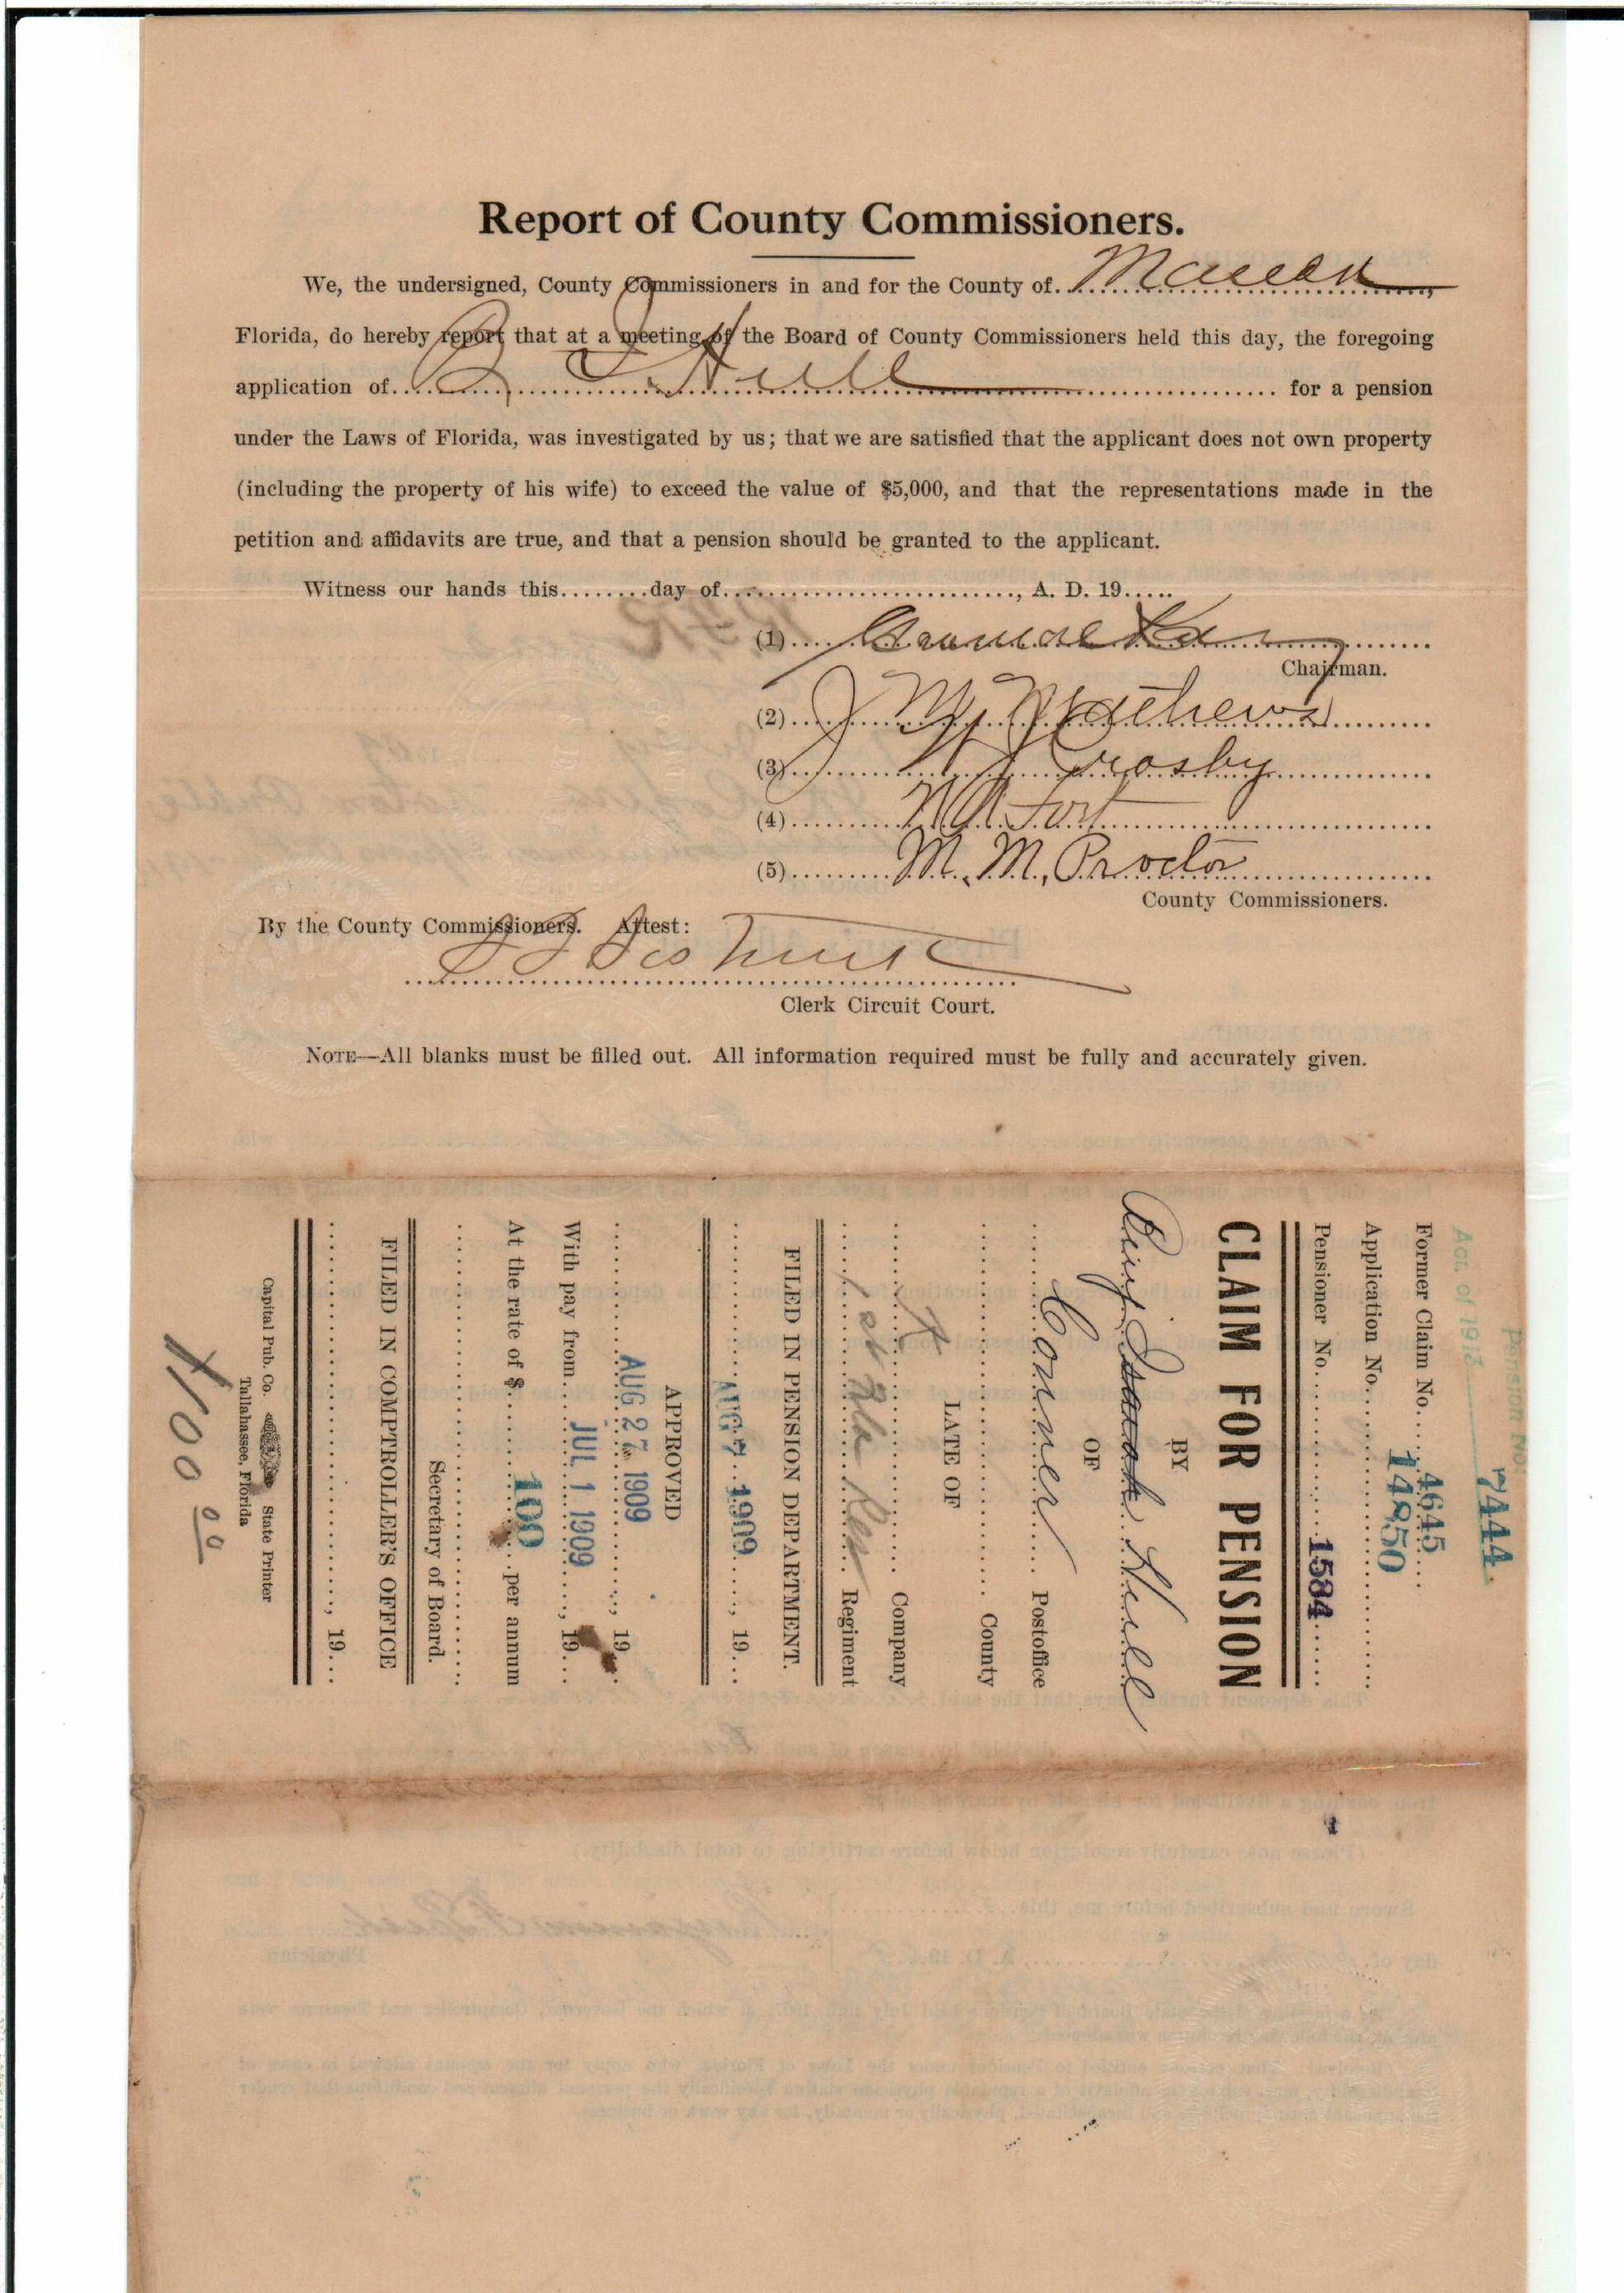 Report of County Commissioners.
We, the undersigned, County Commissioners in and for the County of Marion,
Florida, do hereby report that at a meeting of the Board of County Commissioners held this day, the foregoing
application of B I Hull for a pension
under the Laws of Florida, was investigated by us; that we are satisfied that the applicant does not own property
(including the property of his wife) to exceed the value of $5,000, and that the representations made in the
petition and affidavits are true, and that a pension should be granted to the applicant.
Witness our hands this........day of............................, A. D. 19.....
(1)
Chairman.
(2) J M Mathews
(3) W J Crosby
(4) N A Fort
(5) M. M. Proctor
County Commissioners.
By the County Commissioners. Attest:
Clerk Circuit Court.
NOTE—All blanks must be filled out. All information required must be fully and accurately given.
Pension No. 7444.
Act. of 1913
Former Claim No. 4645
Application No. 14850
Pensioner No. 1584
CLAIM FOR PENSION
BY
Benj. Isaah Hull
OF
Conner Postoffice
County
LATE OF
K Company
1st Fla Res Regiment
FILED IN PENSION DEPARTMENT.
AUG 7 1909, 19...
APPROVED
AUG 27 1909, 19...
With pay from JUL 1 1909, 19...
At the rate of $ 100 per annum
Secretary of Board.
FILED IN COMPTROLLER'S OFFICE
, 19...
Capital Pub. Co. State Printer
Tallahassee, Florida
$100 00